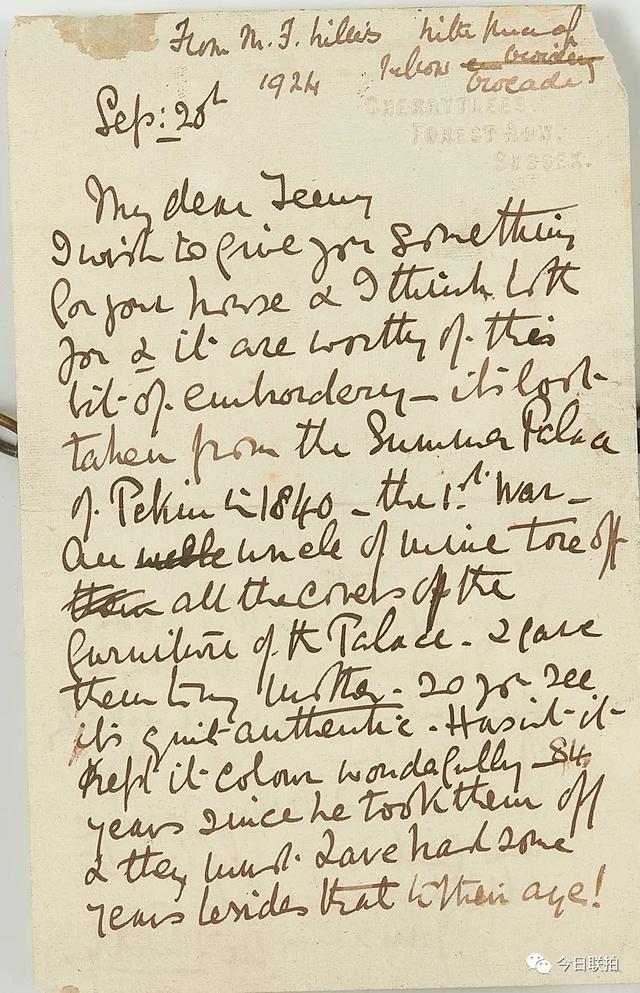 From M. F. Millais with piece of
1924 yellow embroidery
brocade
Sep: 20th
CHERRYTREES.
FOREST ROW.
SUSSEX.
My dear
I wish to give you something
for your house & I think both
you & it are worthy of this
bit of embrordery - its loot
taken from the Summer Palace
of Pekin in 1840 - the 1st War -
An uncle of mine tore off
all the covers of the
furniture of the Palace - & gave
them to my mother - So you see
it's quit authentic - Hasn't it
kept it colour wondefully - 84
years since he took them off
& they must have had some
years besides that to their age!
今日联拍